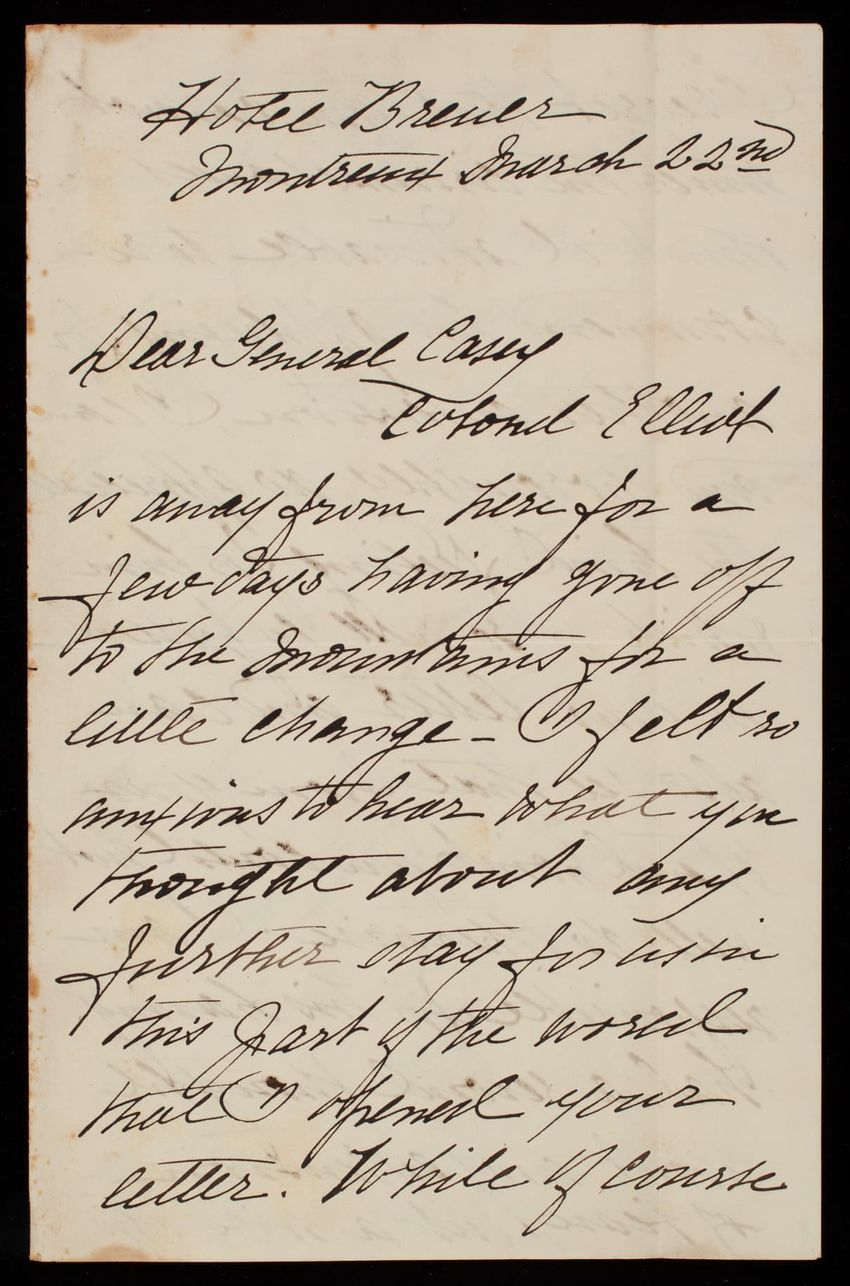 Hotel Breuer
Montreux March 22nd
Dear General Casey
Colonel Elliot
is away from here for a
few days having gone off
to the mountains for a
little change - I felt so
anxious to hear what you
thought about any
further stay for us in
this part of the world
that I opened your
letter. While of course